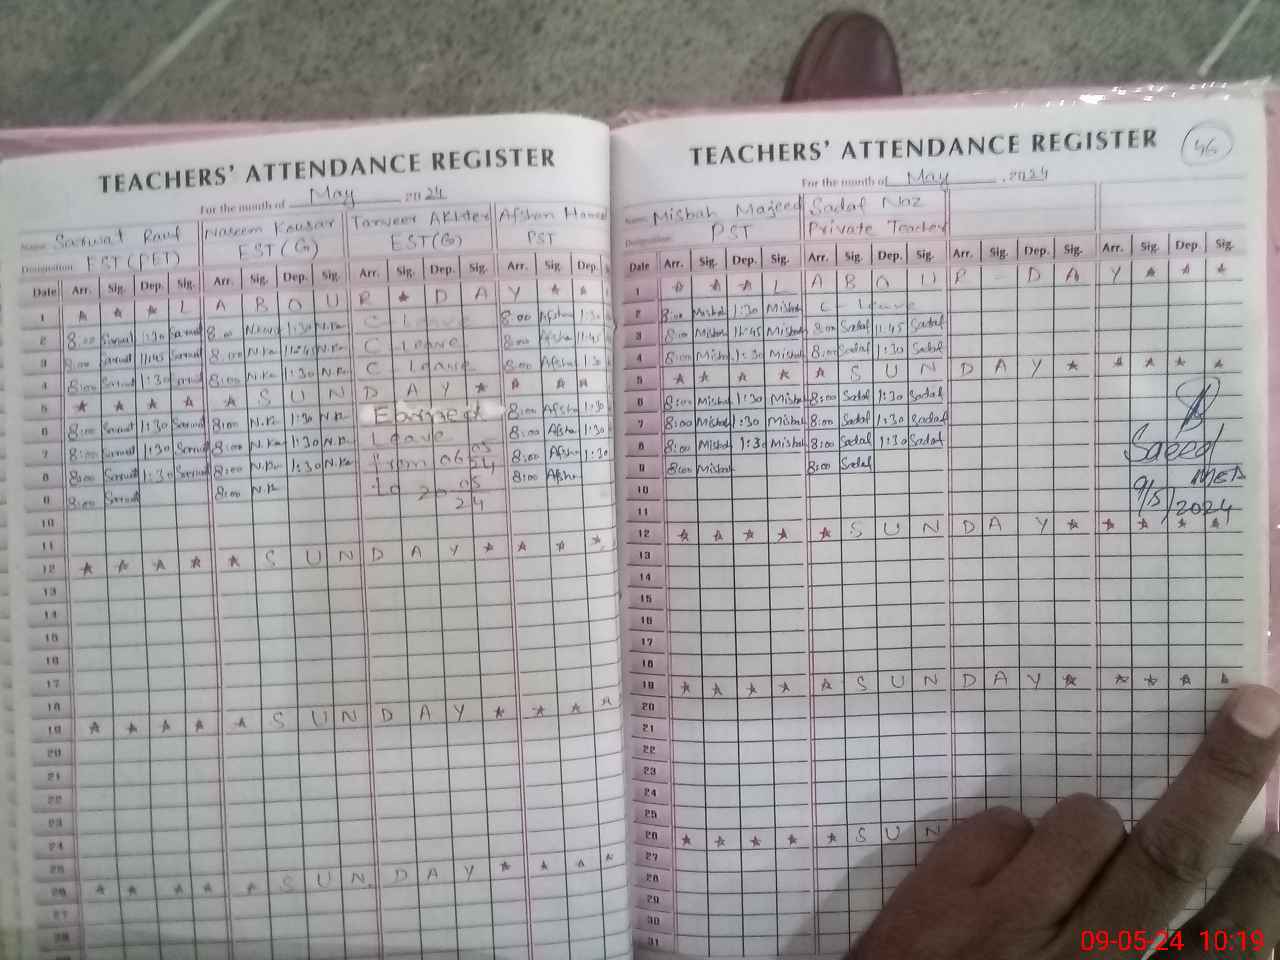 TEACHERS' ATTENDANCE REGISTER
For the month of May 2024
Name Sarwat Rauf Naseem Kousar Tanveer Akhter Afshan
Designation EST(PET) EST(G) EST(G) PST
Date Arr. Sig. Dep. Sig. Arr. Sig. Dep. Sig. Arr. Sig. Dep. Sig. Arr. Sig. Dep.
1 ★ ★ ★ L A B O U R ★ D A Y ★ ★
2 8:00 Sarwat 1:30 Sarwat 8:00 N.K 1:30 N.K C Leave 8:00 Afsha 1:30
3 8:00 Sarwat 11:45 Sarwat 8:00 N.K 11:45 N.K C Leave 8:00 Afsha 11:45
4 8:00 Sarwat 1:30 Sarwat 8:00 N.K 1:30 N.K C Leave 8:00 Afsha 1:30
5 ★ ★ ★ ★ ★ S U N D A Y ★ ★ ★ ★
6 8:00 Sarwat 1:30 Sarwat 8:00 N.K 1:30 N.K 8:00 Afsha 1:30
7 8:00 Sarwat 1:30 Sarwat 8:00 N.K 1:30 N.K Leave 8:00 Afsha 1:30
8 8:00 Sarwat 1:30 Sarwat 8:00 N.K 1:30 N.K from 06 05 24 8:00 Afsha 1:30
9 8:00 Sarwat 8:00 N.K to 20 05 24 8:00 Afsha
10
11
12 ★ ★ ★ ★ ★ S U N D A Y ★ ★ ★ ★
13
14
15
16
17
18
19 ★ ★ ★ ★ ★ S U N D A Y ★ ★ ★ ★
20
21
22
23
24
25
26 ★ ★ ★ ★ ★ S U N D A Y ★ ★ ★ ★
27
28
TEACHERS' ATTENDANCE REGISTER 46
For the month of May, 2024
Name Misbah Majeed Sadaf Naz
Designation PST Private Teacher
Date Arr. Sig. Dep. Sig. Arr. Sig. Dep. Sig. Arr. Sig. Dep. Sig. Arr. Sig. Dep. Sig.
1 ★ ★ ★ L A B O U R - D A Y ★ ★ ★
2 8:00 Misbah 1:30 Misbah C- Leave
3 8:00 Misbah 11:45 Misbah 8:00 Sadaf 11:45 Sadaf
4 8:00 Misbah 1:30 Misbah 8:00 Sadaf 1:30 Sadaf
5 ★ ★ ★ ★ ★ S U N D A Y ★ ★ ★ ★ ★
6 8:00 Misbah 1:30 Misbah 8:00 Sadaf 1:30 Sadaf
7 8:00 Misbah 1:30 Misbah 8:00 Sadaf 1:30 Sadaf
8 8:00 Misbah 1:30 Misbah 8:00 Sadaf 1:30 Sadaf
9 8:00 Misbah 8:00 Sadaf
Saeed
9/5/2024
10
11
12 ★ ★ ★ ★ ★ S U N D A Y ★ ★ ★ ★ ★
13
14
15
16
17
18
19 ★ ★ ★ ★ ★ S U N D A Y ★ ★ ★ ★ ★
20
21
22
23
24
25
26 ★ ★ ★ ★ ★ S U N
27
28
29
30
31
09-05-24 10:19